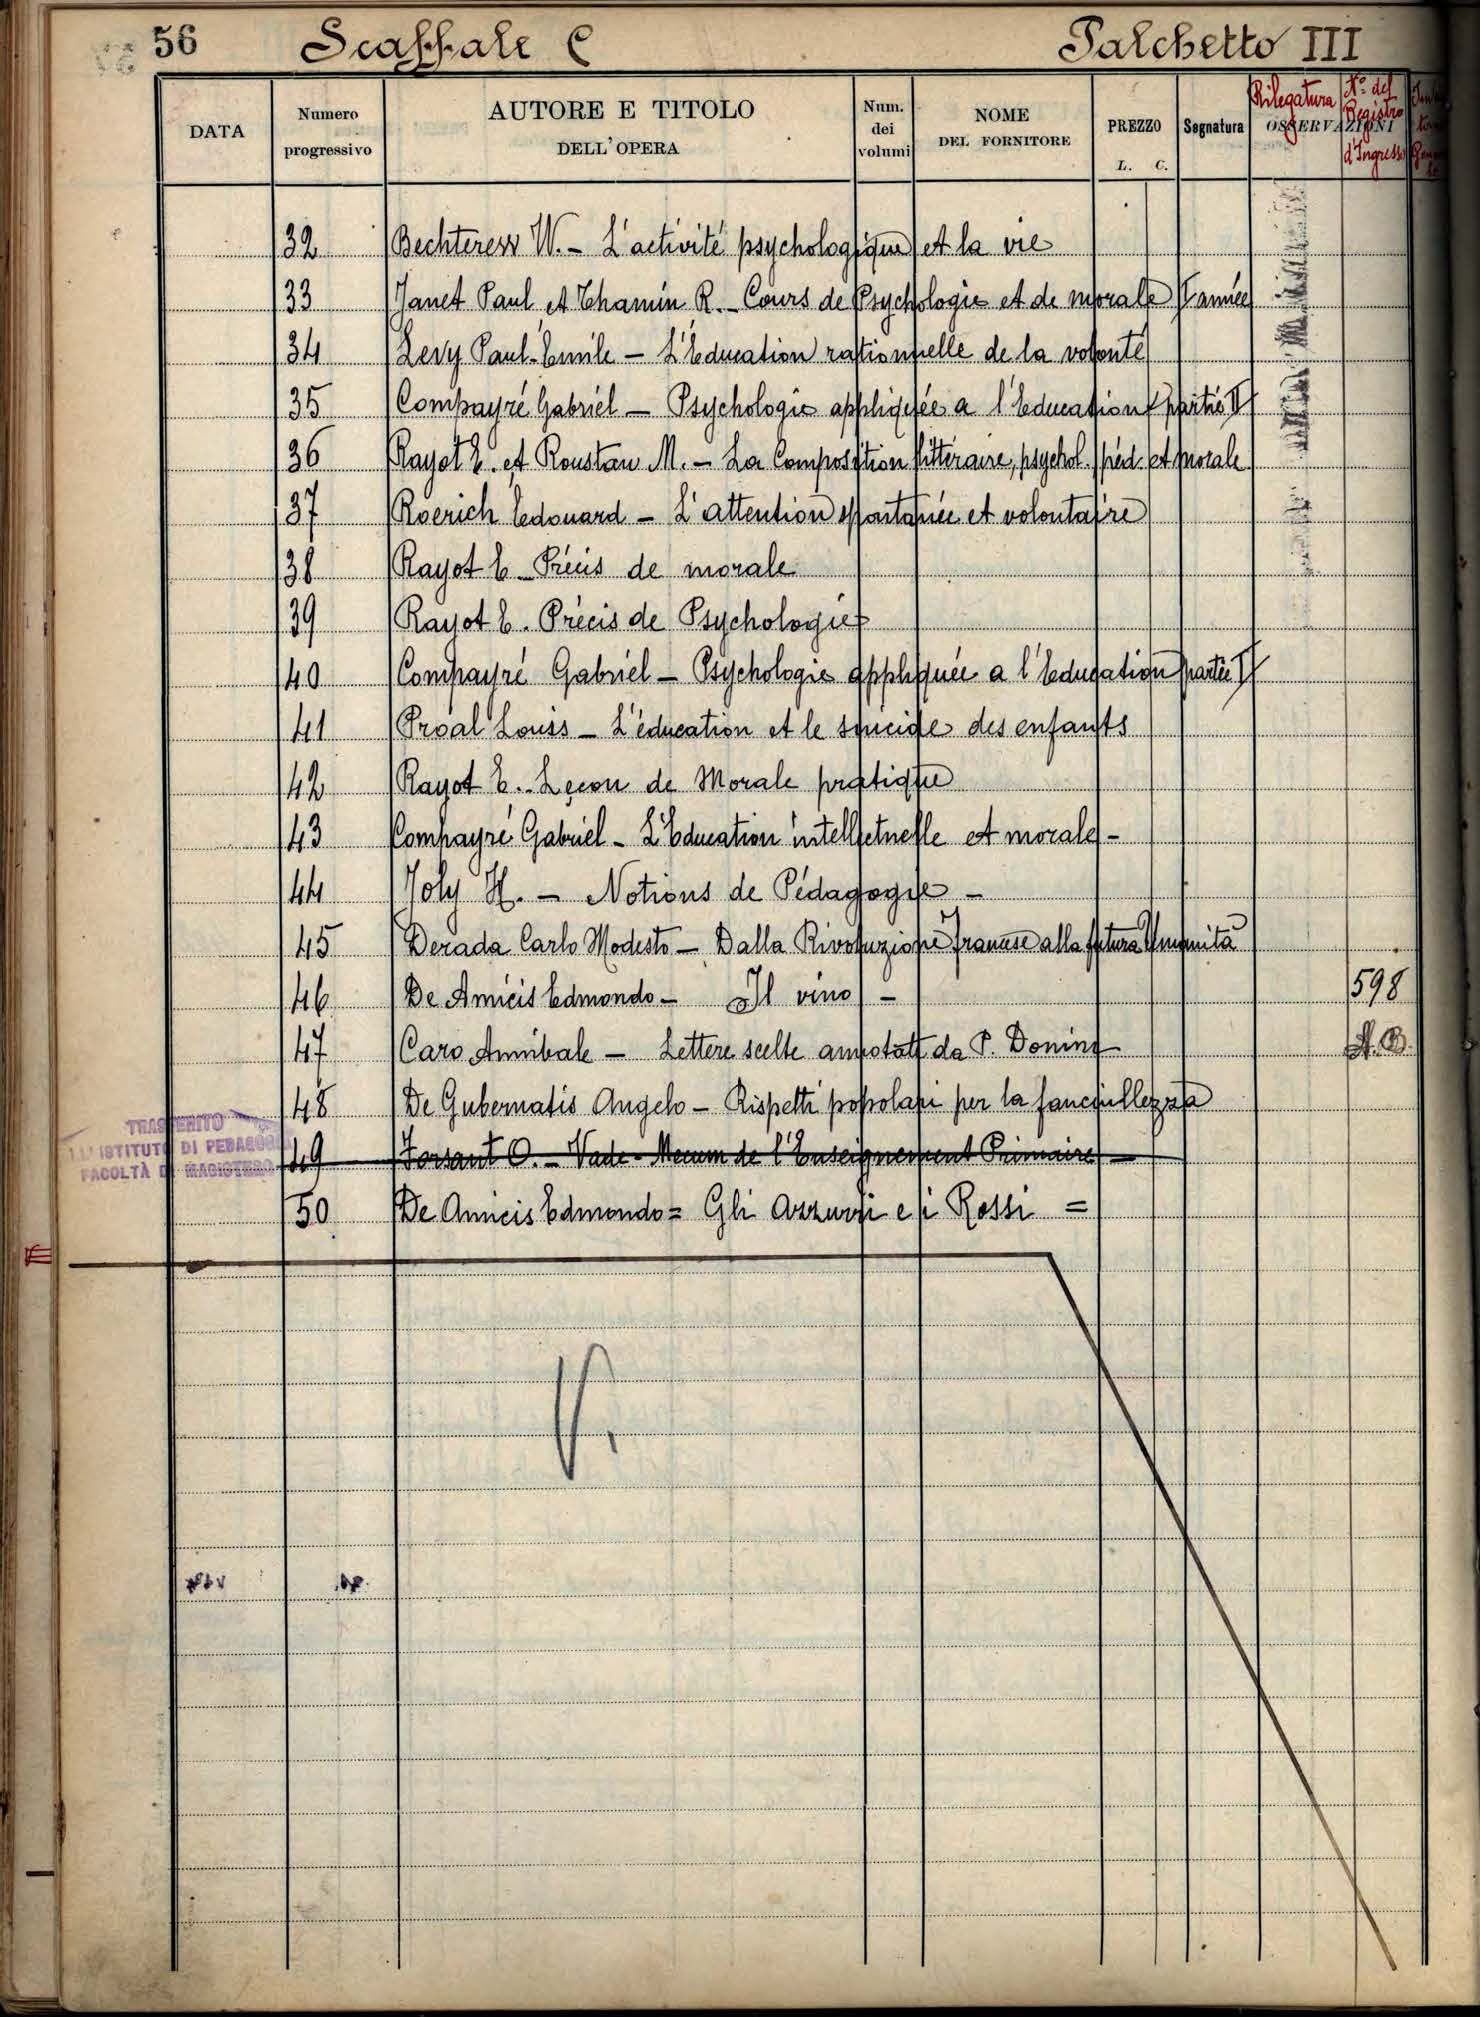 56 Scaffale C Palchetto III
DATA Numero progressivo AUTORE E TITOLO DELL'OPERA Num. dei volumi NOME DEL FORNITORE PREZZO L. C. Segnatura OSSERVAZIONI Rilegatura N.º del Registro d'Ingresso
32 Bechterew W. - L'activité psychologique et la vie
33 Janet Paul et Thamin R. - Cours de Psychologie et de morale I année
34 Levy Paul-Emile - L'Education rationnelle de la volonté
35 Compayré Gabriel - Psychologie appliquée a l'Education (partie II)
36 Rayot E. et Roustan M. - La Composition littéraire, psychol. péd. et morale
37 Roerich Edouard - L'attention spontanée et volontaire
38 Rayot E - Précis de morale
39 Rayot E. Précis de Psychologie
40 Compayré Gabriel - Psychologie appliquée a l'Education partie I
41 Proal Louis - L'éducation et le suicide des enfants
42 Rayot E. - Leçon de Morale pratique
43 Compayré Gabriel - L'Education intellectuelle et morale -
44 Joly H. - Notions de Pédagogie -
45 Derada Carlo Modesto - Dalla Rivoluzione francese alla futura Umanità
46 De Amicis Edmondo - Il vino - 598
47 Caro Annibale - Lettere scelte annotate da P. Donini
48 De Gubernatis Angelo - Rispetti popolari per la fanciullezza
TRASFERITO
ALL'ISTITUTO DI PEDAGOGIA
FACOLTÀ DI MAGISTERO
49 Forsant O. - Vade-Mecum de l'Enseignement Primaire -
50 De Amicis Edmondo = Gli Azzurri e i Rossi =
V.